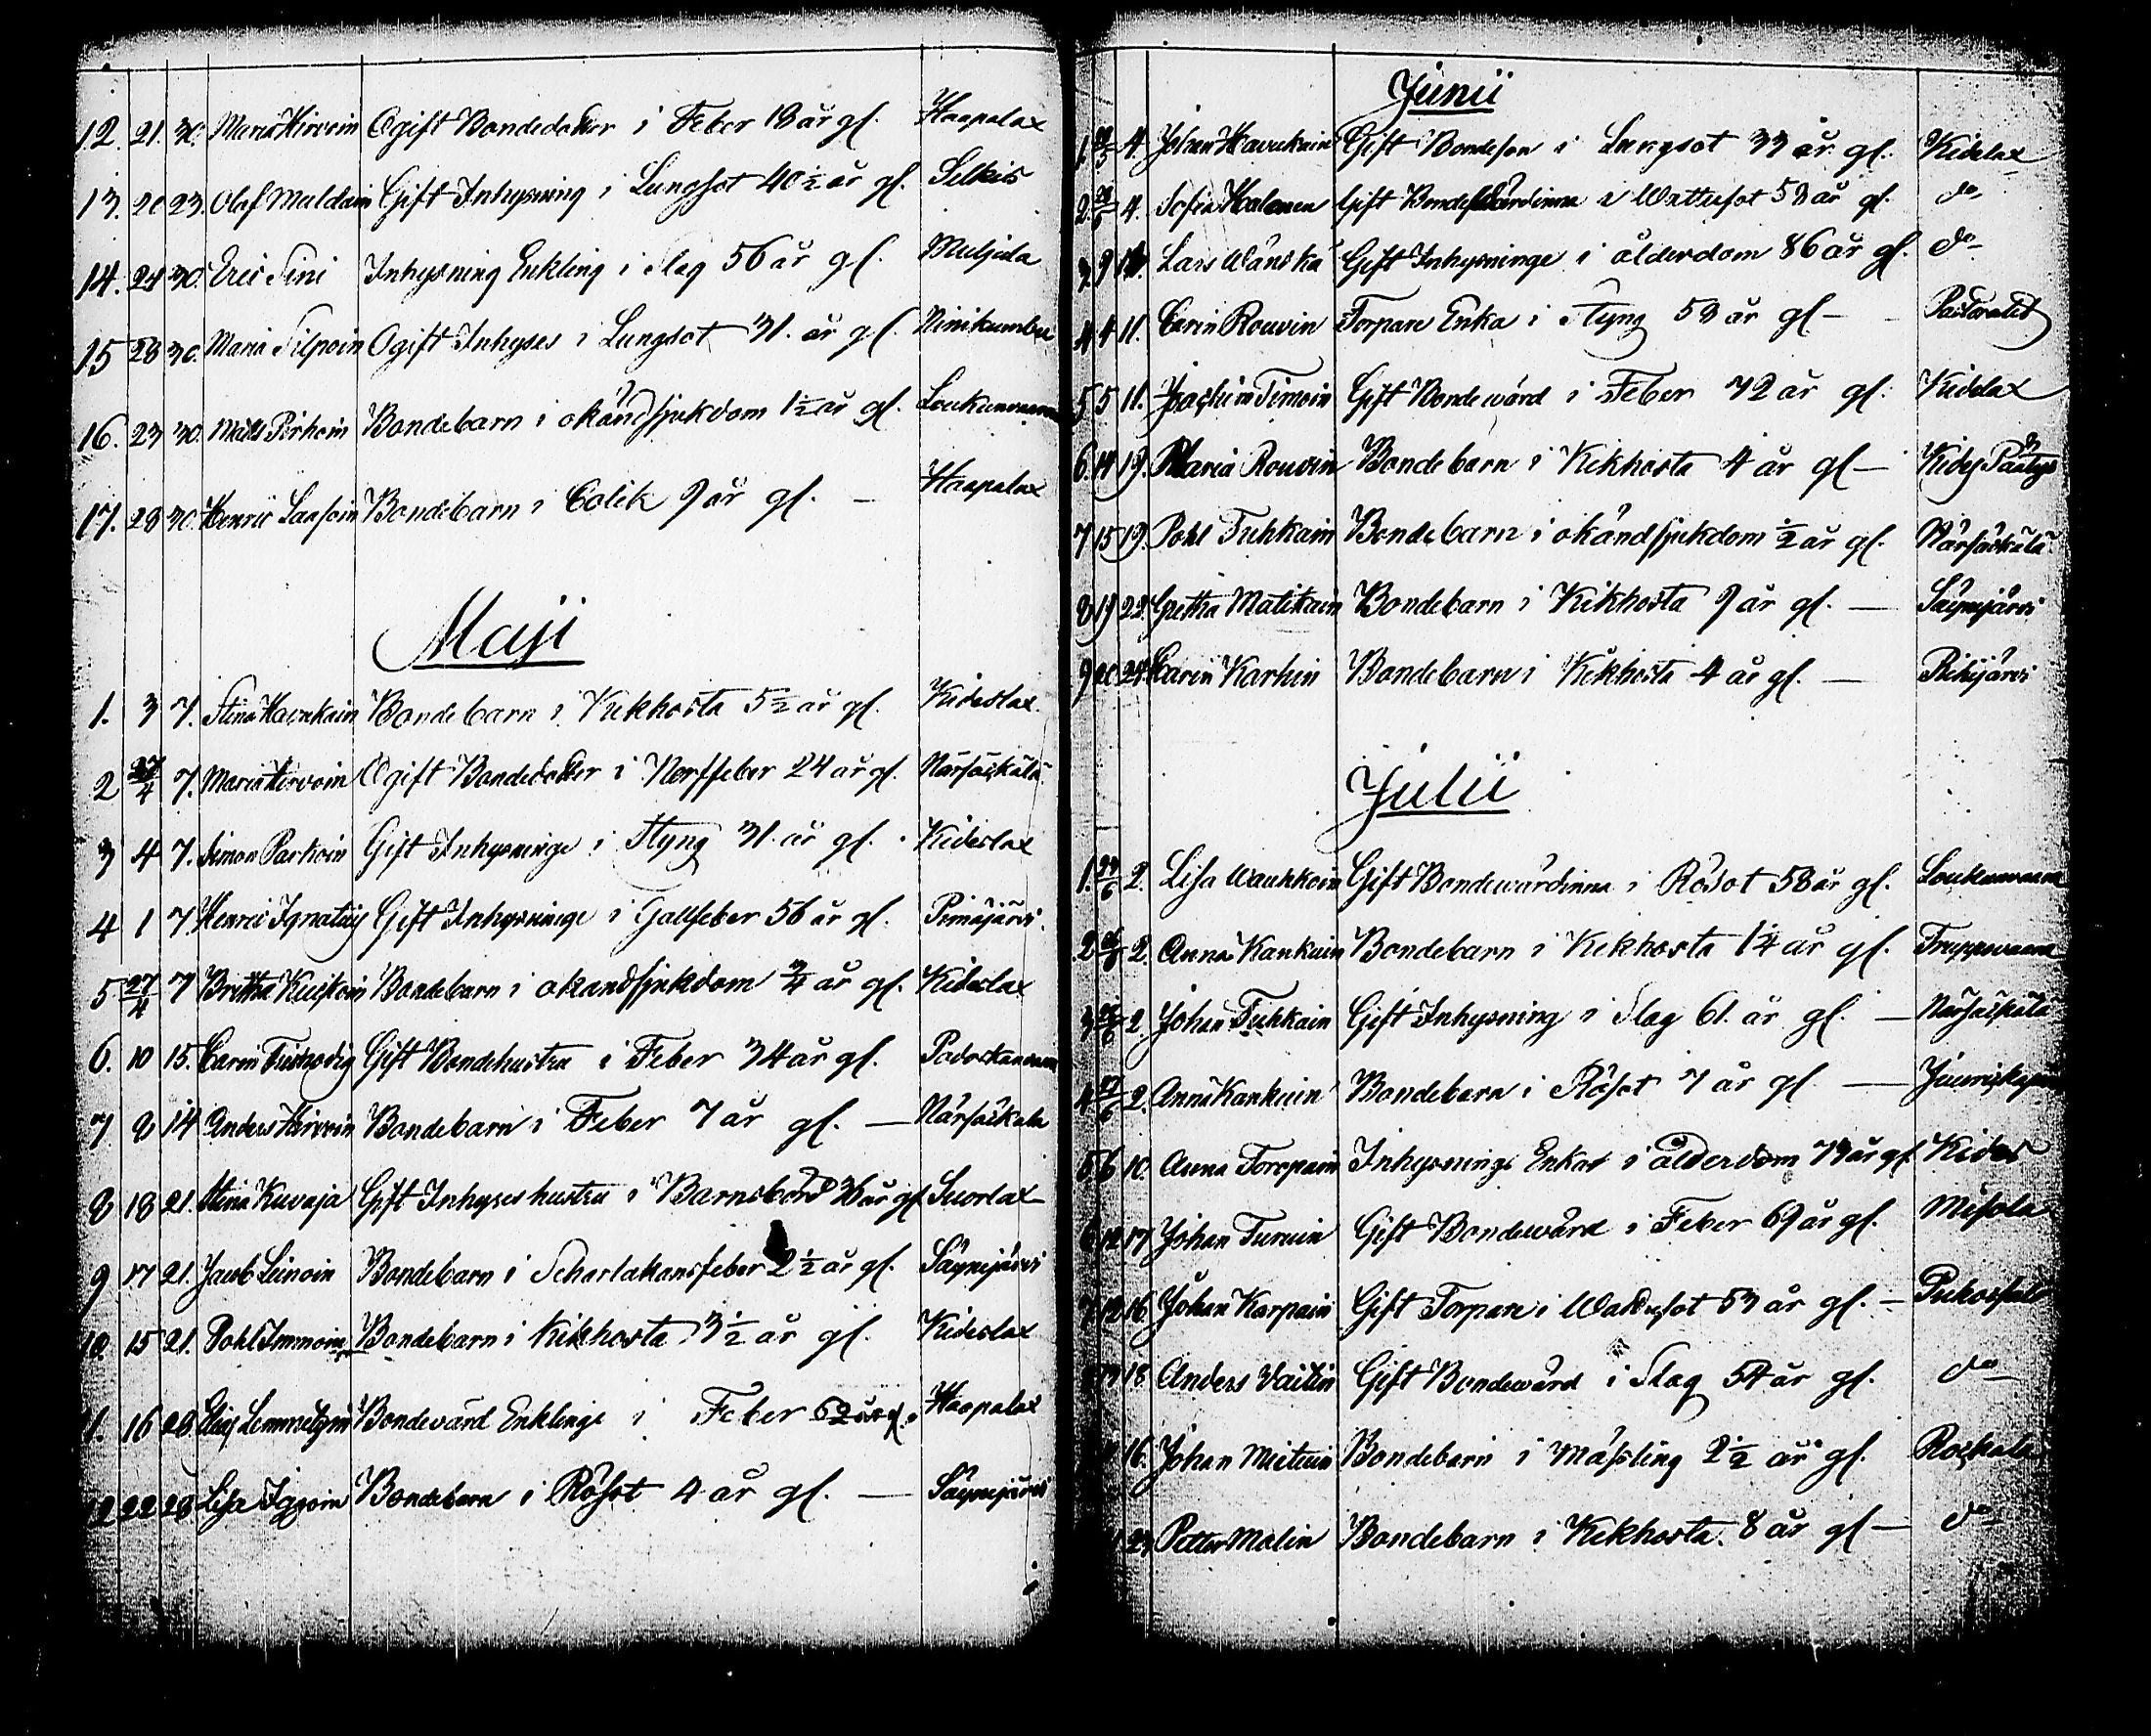 12. 21. 30. Maria Hirvoin Ogift Bondedotter i Feber 18 år gl. Haapalax
13. 20 23. Olof Muldain Gift Inhysning i Lungsot 40 1/2 år gl. Selkis
14. 24 30. Eric Sini Inhysning Enkling i Slag 56 år gl. Muljula
15 28 30. Maria Silpoin Ogift Inhyses i Lungsot 31. år gl. Ninikumbu
16. 23 30. Matts Pirhoin Bondebarn i okändsjukdom 1 1/2 år gl. Loukunvaara
17. 28 30. Henric Laasoin Bondebarn i Colik 9 år gl. — Haapalax
Maji
1. 3 7. Stina Havukain Bondebarn i Kikhosta 5 1/2 år gl. Kideslax
2 27/4 7. Maria Hirvoin Ogift Bondedotter i Nerffeber 24 år gl. Närsäkälä
3 4 7. Simon Parkoin Gift Inhysninge i Styng 31. år gl. Kideslax
4 1 7. Henric Ignatiuj Gift Inhysninge i Gallfeber 56 år gl. Pimäjärvi.
5 27/4 7 Brittha Kuiskoin Bondebarn i okandsjukdom 3/4 år gl. Kideslax
6. 10 15. Carin Gift Bondehustru i Feber 34 år gl. Podoskanvaara
7 8 14 Anders Hirvoin Bondebarn i Feber 7 år gl. — Närsäkälä
8 18 21. Stina Kuvaja Gift Inhyseshustru i Barnsbörd 36 år gl Suorlax
9 17 21. Jacob Leinoin Bondebarn i Scharlakansfeber 2 1/2 år gl. Säynejärvi
10. 15 21. Pohl Immoin Bondebarn i Kikhosta 3 1/2 år gl. Kideslax
11. 16 28. Elias Lemmetyin Bondevärd Enklinge i Feber 62 år gl. Haapalax
12 22 28 Lisa Bondebarn i Rösot 4 år gl. — Säynejärvi
Junii
1. 4. Johan Havukain Gift Bondeson i Lungsot 33 år gl. Kidelax
2. 4. Sofia Halonen Gift Bondewärdinna i Wattusot 53 år gl. do
3. 9 Lars Wänskä Gift Inhysninge i ålderdom 86 år gl. do
4 4 11. Carin Rouvin Torpare Enka i Styng 53 år gl — Pastoratet
5 5 11. Joachim Timoin Gift Bondewärd i Feber 72 år gl. Kidelax
6. 14 19. Maria Rouvin Bondebarn i Kikhosta 4 år gl — Kidej
7 15 19. Pohl Tuhkain Bondebarn i okändsjukdom 1/2 år gl. Närsäkälä
8 19 22. Gretha Matikain Bondebarn i Kikhosta 9 år gl. — Säynejärvi
9 20 24. Carin Karhin Bondebarn i Kikhosta 4 år gl. — Riihijärvi
Julii
1. 24/6 2. Lisa Wauhkoin Gift Bondewärdinna i Rösot 58 år gl. Loukunvaara
2 26/6 2. Anna Kankain Bondebarn i Kikhosta 1 1/4 år gl. Truppovaara
3 2. Johan Tuhkain Gift Inhysning i Slag 61. år gl. — Närsäkälä
4 27/6 2. Anna Kankuin Bondebarn i Rösot 7 år gl —
5 6 10. Anna Toropain Inhysninge Enka i ålderdom 73 år gl. Kides
6 12 17 Johan Turuin Gift Bondewärd i Feber 69 år gl. Misola
7 12 16 Johan Karpain Gift Torpare i Wattusot 53 år gl. — Pukosalo
18 Anders Vaitin Gift Bondewärd i Slag 54 år gl. do
16. Johan Bondebarn i Mässling 2 1/2 år gl. Roskala
23 Petter Malin Bondebarn i Kikhosta. 8 år gl — do